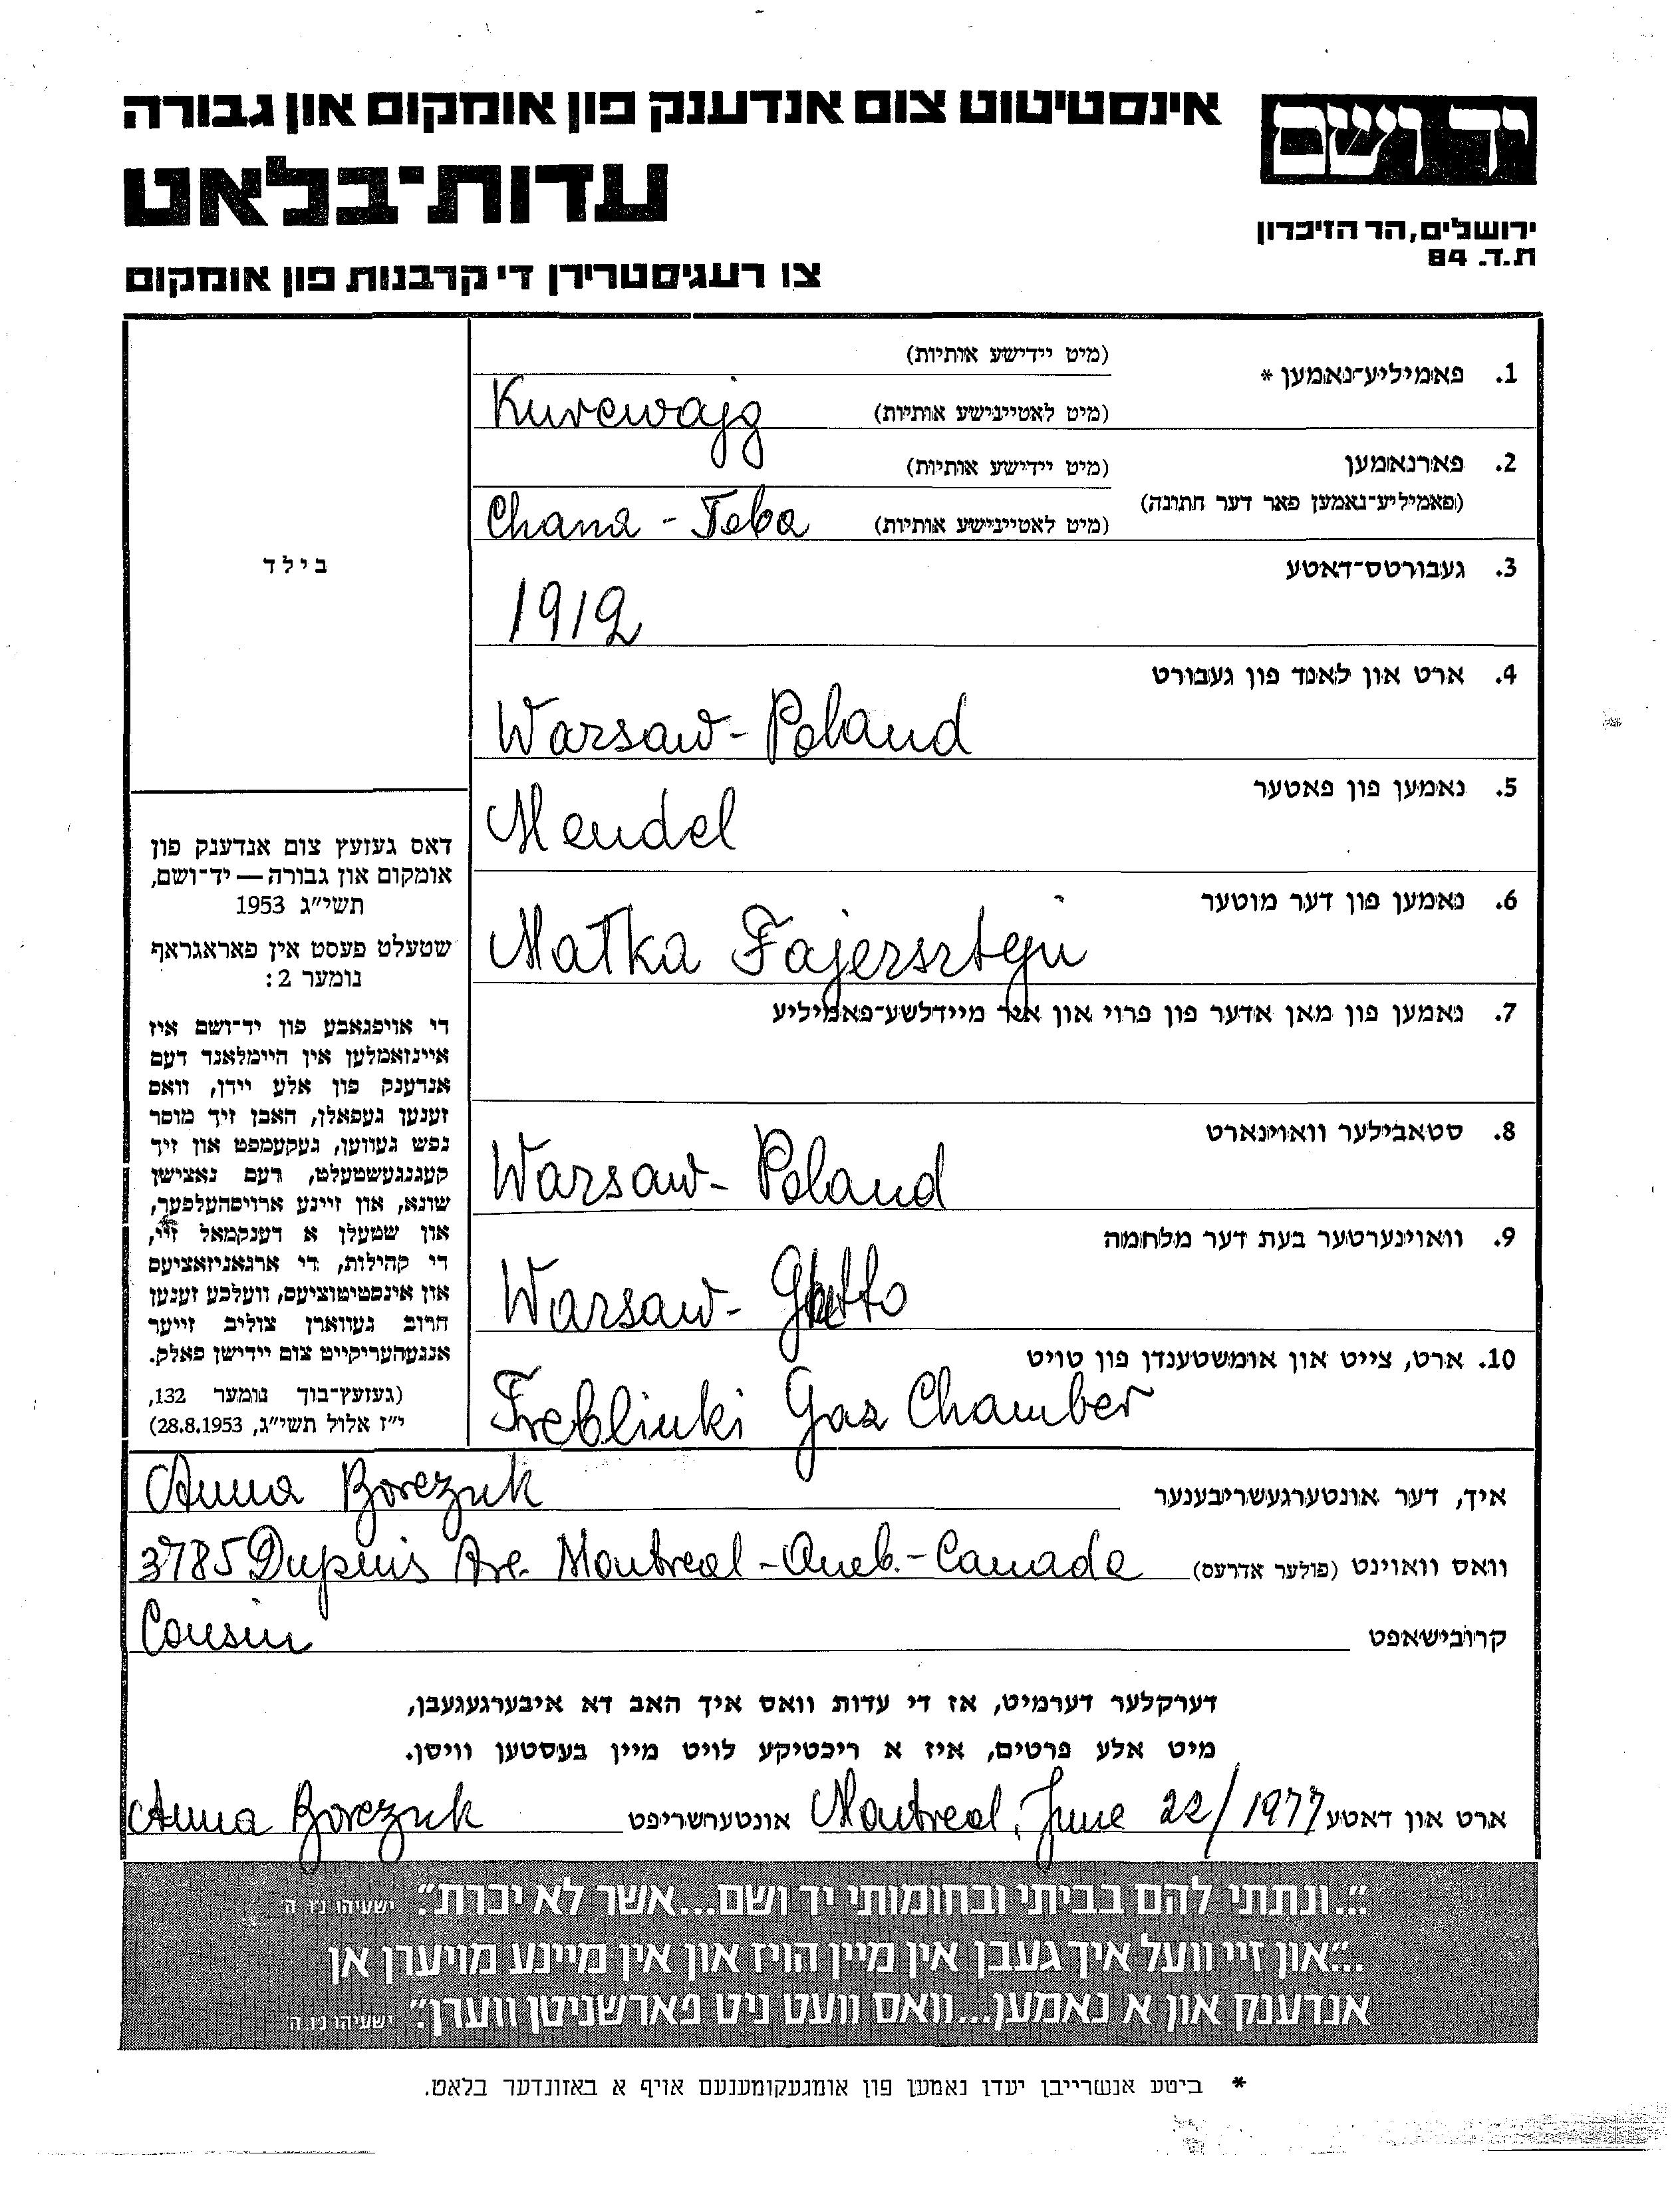 אינסטיטוט צום אנדענק פון אומקום און גבורה
יד ושם
עדות־בלאט
ירושלים, הר הזיכרון
ת.ד. 84
צו רעגיסטרירן די קרבנות פון אומקום
1. פאמיליע־נאמען *
(מיט יידישע אותיות)
(מיט לאטיינישע אותיות) Kurcwajg
2. פארנאמען
(מיט יידישע אותיות)
(פאמיליע־נאמען פאר דער חתונה)
(מיט לאטיינישע אותיות) Chana - Toba
בילד
3. געבורטס־דאטע
1912
4. ארט און לאנד פון געבורט
Warsaw - Poland
5. נאמען פון פאטער
Mendel
6. נאמען פון דער מוטער
Matka Fajersztejn
7. נאמען פון מאן אדער פון פרוי און איר מיידלשע־פאמיליע
8. סטאבילער וואוינארט
Warsaw - Poland
9. וואוינערטער בעת דער מלחמה
Warsaw - Ghetto
10. ארט, צייט און אומשטענדן פון טויט
Treblinki Gaz Chamber
דאס געזעץ צום אנדענק פון
אומקום און גבורה — יד־ושם,
תשי"ג 1953
שטעלט פעסט אין פאראגראף
נומער 2:
די אויפגאבע פון יד־ושם איז
איינזאמלען אין היימלאנד דעם
אנדענק פון אלע יידן, וואס
זענען געפאלן, האבן זיך מוסר
נפש געווען, געקעמפט און זיך
קעגנגעשטעלט, דעם נאצישן
שונא, און זיינע ארויסהעלפער,
און שטעלן א דענקמאל זיי,
די קהילות, די ארגאניזאציעס
און אינסטיטוציעס, וועלכע זענען
חרוב געווארן צוליב זייער
אנגעהעריקייט צום יידישן פאלק.
(געזעץ־בוך נומער 132,
י"ז אלול תשי"ג, 28.8.1953)
איך, דער אונטערגעשריבענער Anna Borczuk
וואס וואוינט (פולער אדרעס) 3785 Dupuis Ave. Montreal - Queb. - Canada
קרובישאפט Cousin
דערקלער דערמיט, אז די עדות וואס איך האב דא איבערגעגעבן,
מיט אלע פרטים, איז א ריכטיקע לויט מיין בעסטען וויסן.
ארט און דאטע Montreal, June 22/1977 אונטערשריפט Anna Borczuk
"...ונתתי להם בביתי ובחומותי יד ושם...אשר לא יכרת". ישעיהו נ״ו ה'
..."און זיי וועל איך געבן אין מיין הויז און אין מיינע מויערן אן
אנדענק און א נאמען...וואס וועט ניט פארשניטן ווערן". ישעיהו נ״ו ה'
* ביטע אנשרייבן יעדן נאמען פון אומגעקומענעם אויף א באזונדער בלאט.